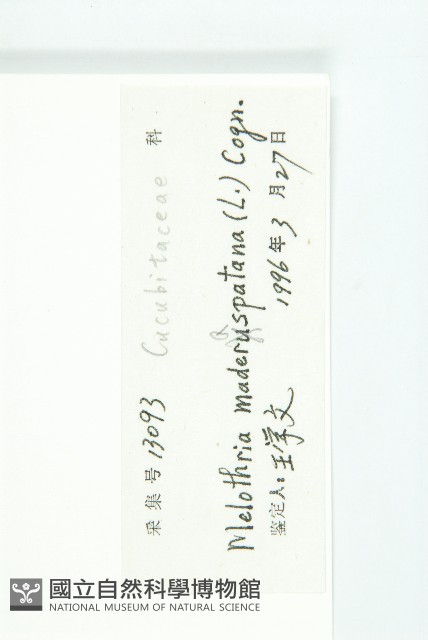 采集号 13093 Cucubitaceae 科
Melothria maderuspatana (L.) Cogn.
鉴定人: 王学文 1996年3月27日
國立自然科學博物館
NATIONAL MUSEUM OF NATURAL SCIENCE